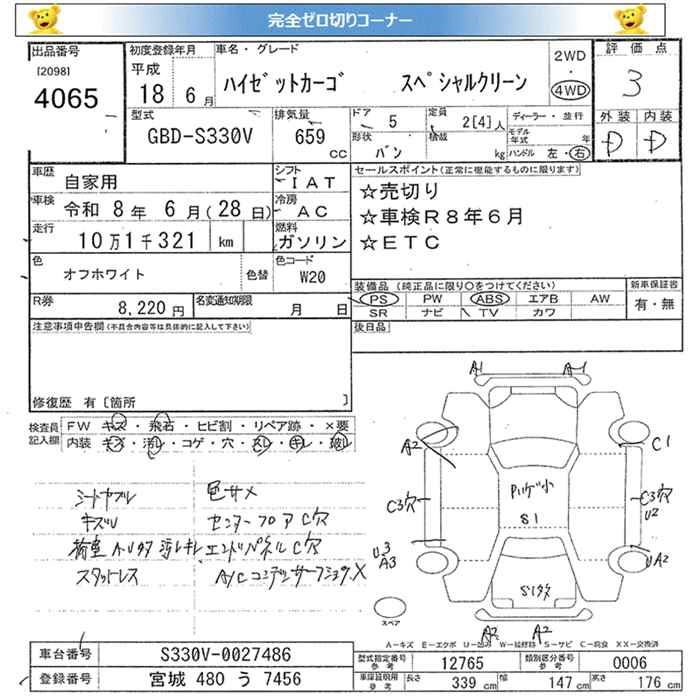 完全ゼロ切りコーナー
出品番号 初度登録年月 車名・グレード 2WD・4WD 評価点
[2098] 平成 ハイゼットカーゴ スペシャルクリーン 3
4065 18年 6月
型式 排気量 ドア 5 定員 2[4]人 ディーラー・並行 外装 内装
GBD-S330V 659 CC 形状 バン 積載 kg モデル年式 年 ハンドル 左・右 D D
車歴 自家用 シフト IAT セールスポイント(正常に機能するものに限ります)
車検 令和 8年 6月(28日) 冷房 AC ☆売切り
走行 10万1千321 km 燃料 ガソリン ☆車検R8年6月
☆ETC
色 オフホワイト 色替 色コード W20
装備品(純正品に限り○をつけてください) 新車保証書
R券 8,220円 名変通知期限 月 日 PS PW ABS エアB AW 有・無
SR ナビ TV カワ
注意事項申告欄(不具合内容等は具体的に記入して下さい) 後日品
修復歴 有[箇所 ]
検査員記入欄 FW キズ・飛石・ヒビ割・リペア跡・×要
内装 キズ・汚レ・コゲ・穴・スレ・キレ・破レ
シートヤブレ 色サメ
キズU センターフロアC穴
荷室 エンドパネルC穴
スタットレス A/Cコンデンサー
A1 A1
A2 C1
C3穴 C3穴
U2
S1
U3
A3 UA2
A2 A2
スペア
A-キズ E-エクボ U-凹み W-補修跡 S-サビ C-腐食 XX-交換済
車台番号 S330V-0027486 型式指定番号 参考 12765 類別区分番号 参考 0006
登録番号 宮城 480 う 7456 車庫証明用 参考 長さ 339 cm 幅 147 cm 高さ 176 cm